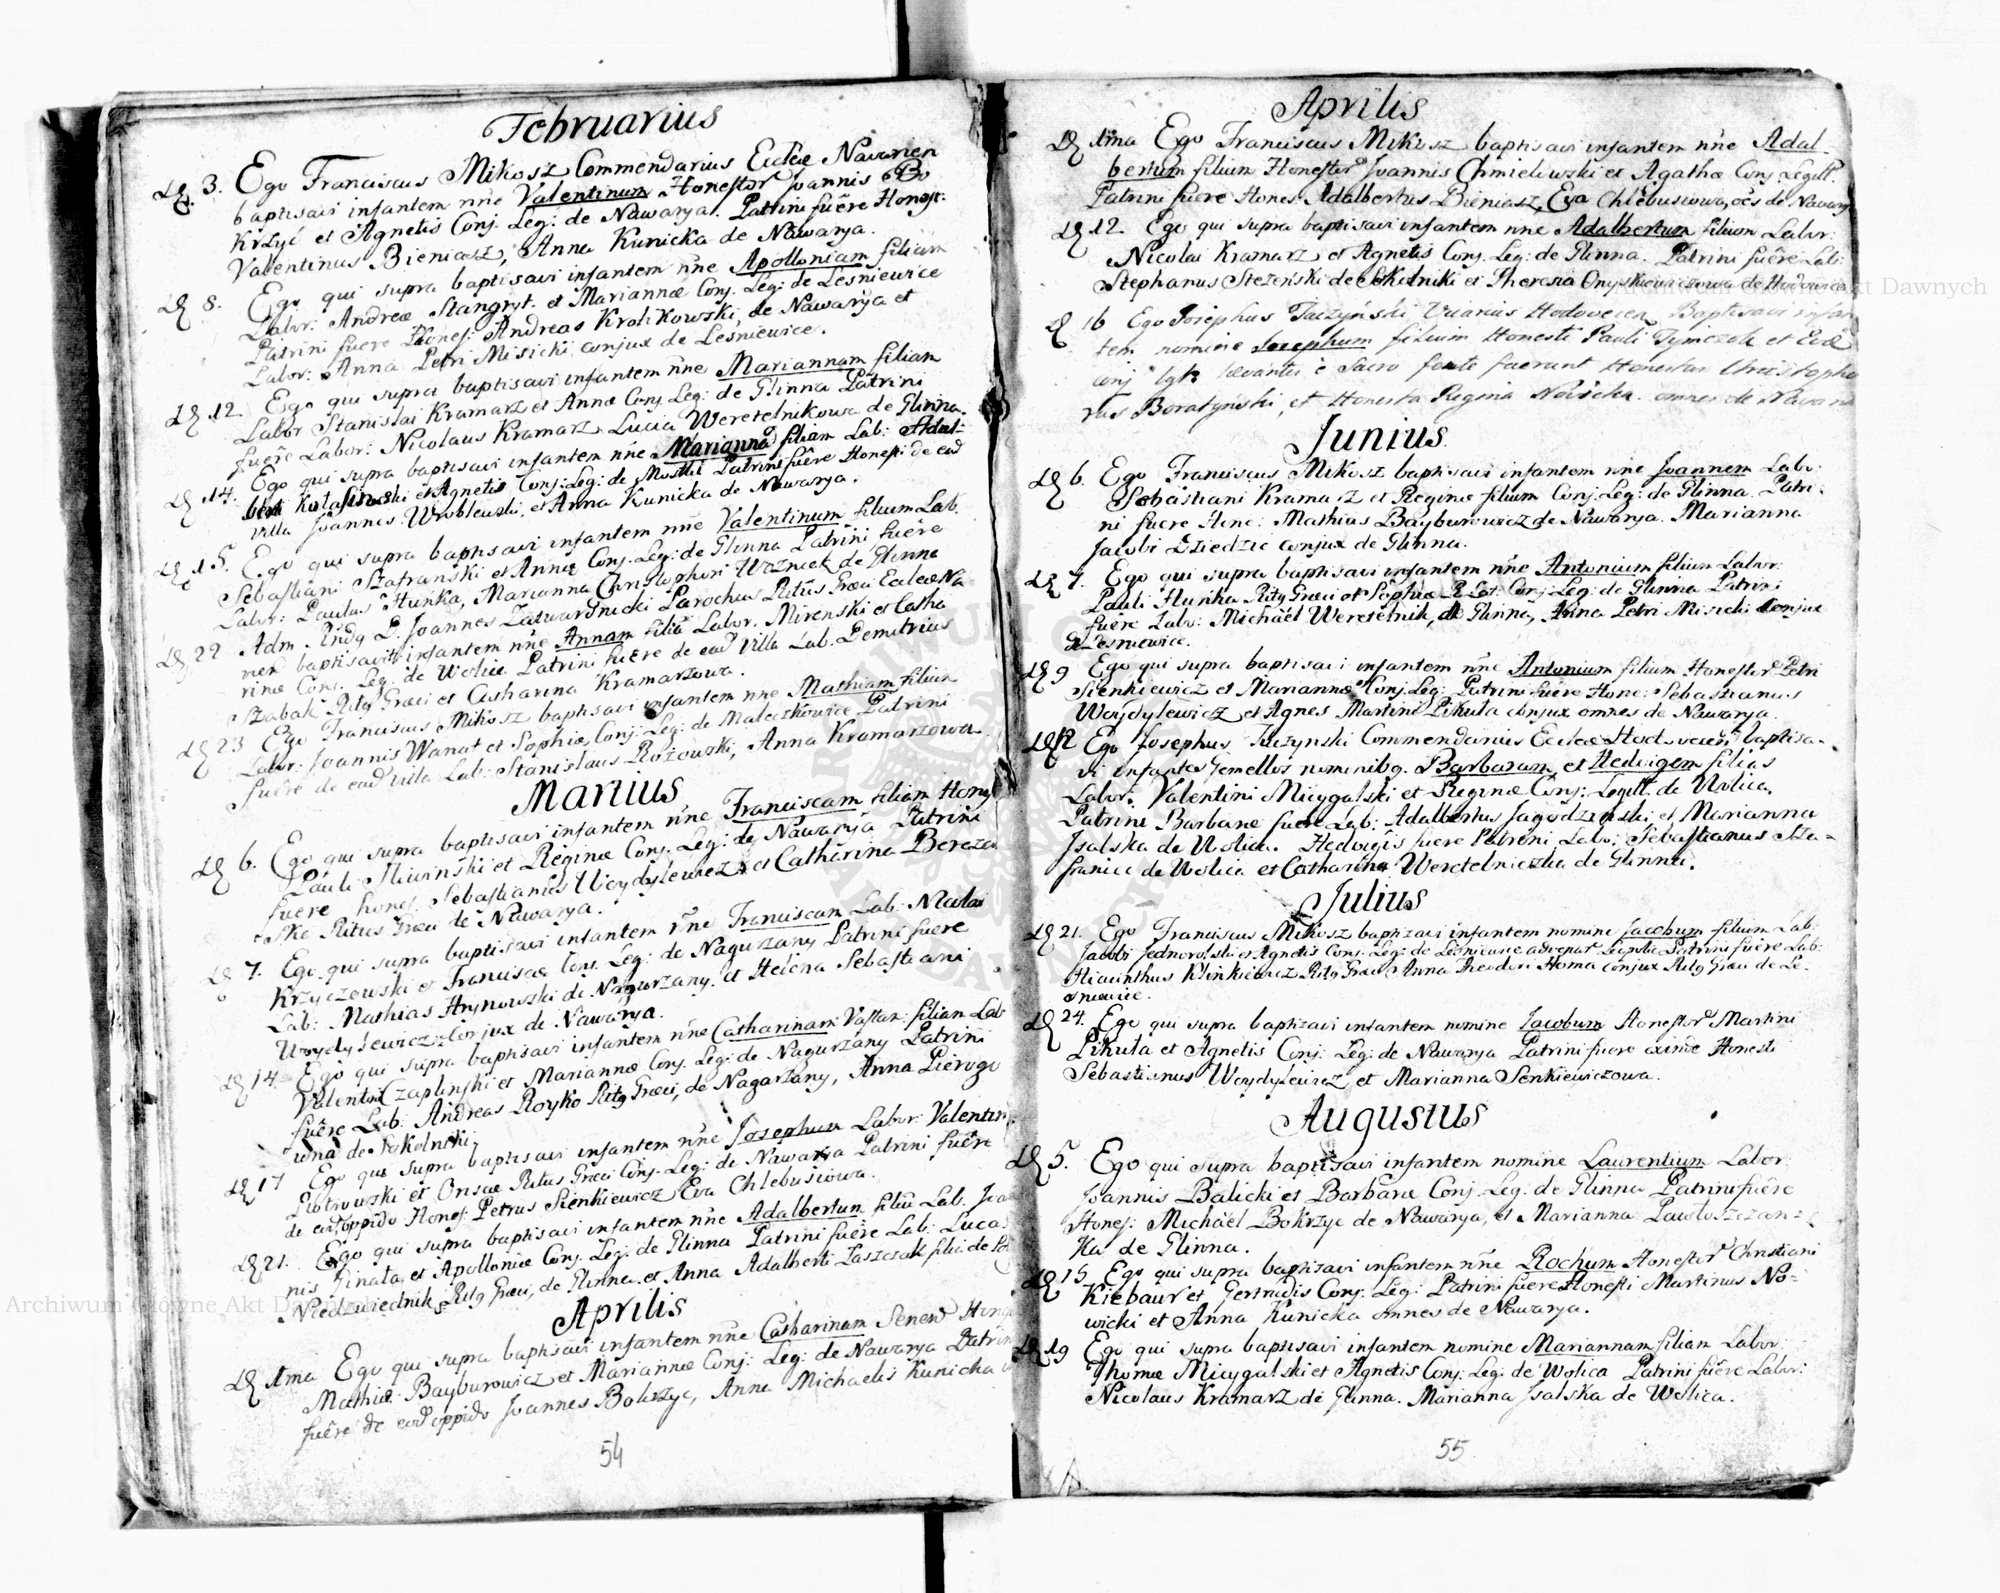 Februarius
D. 3. Ego Franciscus Mikosz Commendarius Eccłae Nawarien
baptisavi infantem nñe Valentinum Honestor Joannis Bo
Krzyć et Agnetis Conj. Leg: de Nawarya. Patrini fuêre Honest:
Valentinus Bieniasz, Anna Kunicka de Nawarya.
D 8. Ego qui supra baptisavi infantem nñe Apolloniam filiam
Labor: Andreæ Stangryt. et Mariannæ Conj. Leg: de Lesniewice
Patrini fuere Honest: Andreas Krolikowski de Nawarya et
Labor: Anna Petri Misicki conjux de Leśniewice.
D 12. Ego qui supra baptisavi infantem nñe Mariannam filiam
Labor Stanislai Kramarz et Annæ Conj. Leg: de Glinna Patrini
fuere Labor: Nicolaus Kramarz Lucia Weretelnikowa de Glinna.
D 14. Ego qui supra baptisavi infantem nñe Marianna filiam Lab: Adal-
berti et Agnetis Conj. Leg: de Mostki Patrini fuêre Honesti de ead
Villa Joannes Wroblewski, et Anna Kunicka de Nawarya.
D 15. Ego qui supra baptisavi infantem nñe Valentinum filium Lab.
Sebastiani Szafranski et Annæ Conj. Leg: de Glinna Patrini fuêre
Labor: Paulus Hunka, Marianna Christophori Wozniek de Glinna
D 22 Adm. Rndg D. Joannes Zatwardnicki Parochus Ritûs Græci Eccleæ Na
ren baptisavit infantem nñe Annam filiã Labor. Mirenski et Catha
rinæ Conj. Leg. de Wolica Patrini fuêre de ead Villa Lab. Demetrius
Szabak Ritg Græci et Catharina Kramarzowa.
D 23 Ego Franciscus Mikosz baptisavi infantem nñe Mathiam filium
Labor: Joannis Wanat et Sophiæ, Conj. Leg: de Maleczkowice Patrini
fuêre de ead villa Lab: Stanislaus Rożowski, Anna Kramarzowa
Martius
D 6. Ego qui supra baptisavi infantem nñe Franciscam filiam Honest
Pauli Sliwinski et Reginæ Conj. Leg: de Nawarya Patrini
fuere honest. Sebastianus Woydylewicz et Catharina Bereza
Ritus Græci de Nawarya.
D 7. Ego qui supra baptisavi infantem nñe Franciscam Lab:
Krzyczowski et Franciscæ Conj. Leg: de Nagurzany Patrini fuere
Lab: Mathias Hrynowski de Nagurzany. et Helena Sebastiani
Woydylewicz Conjux de Nawarya.
D 14. Ego qui supra baptisavi infantem nñe Catharinam filiam Lab
Valenti Czaplinski et Mariannæ Conj. Leg: de Nagurzany Patrini
fuêre Lab: Andreas Royko Ritg Græci, de Nagarzany, Anna Pierogo
wna de Sokolniki
D 17 Ego qui supra baptisavi infantem nñe Josephum Labor: Valentin
Piotrowski et Ritus Græci Conj. Leg: de Nawarya Patrini fuêre
de ead oppido Honest. Petrus Sienkiewicz Eva Chlebusiowa.
D 21. Ego qui supra baptisavi infantem nñe Adalbertum filiũ Lab. Joan
nis Ginata, et Apolloniæ Conj. Leg: de Glinna Patrini fuêre Lab: Lucas
Niedzwiednik, Ritg Græci, de Glinna. et Anna Adalberti Laszczak
Aprilis
D 1ma Ego qui supra baptisavi infantem nñe Catharinam
Mathiæ Bayburowicz et Mariannæ Conj: Leg: de Nawarya Patrin
fuêre de eod oppido Joannes Bokrzyc, Anna Michaelis Kunicka
54
Aprilis
D 1ma Ego Franciscus Mikosz baptisavi infantem nñe Adal-
bertum filium Honestor Joannis Chmielewski et Agathæ Conj. Legitt.
Patrini fuere Hones. Adalbertus Bieniasz, Eva Chlebusiowa, oẽs de Nawary
D 12. Ego qui supra baptisavi infantem nñe Adalbertum filium Labor:
Nicolai Kramarz et Agnetis Conj. Leg: de Glinna. Patrini fuêre Lab:
Stephanus Stezeński de Sokolniki et Theresia Onyskiewiczowa de Hodowica
D 16 Ego Josephus Jaczyński Vicarius Hodovecen Baptisavi infan
tem nomine Josephum filium Honesti Pauli Tymczak et Evæ
conj lgtt Levantes è Sacro fonte fuerunt Honestus Christopho
rus Boratynski, et Honesta Regina Noiścka. omnes de Navaria
Junius
D 6. Ego Franciscus Mikosz baptisavi infantem nñe Joannem Labo:
Sebastiani Kramarz et Reginæ filium Conj. Leg: de Glinna. Patri-
ni fuere Hone: Mathias Bayburowicz de Nawarya. Marianna
Jacobi Dziedzic conjux de Glinna.
D 7. Ego qui supra baptisavi infantem nñe Antonium filium Labor:
Pauli Hunka Ritg Græci et Sophiæ R. Lat. Conj. Leg: de Glinna Patrini
fuêre Labo: Michaël Weretelnik, de Glinna, Anna Petri Misicki Conjux
de Lesniewice.
D 9 Ego qui supra baptisavi infantem nñe Antonium filium Honestor Petri
Sienkiewicz et Mariannæ Conj. Leg: Patrini fuêre Hone: Sebastianus
Woydylewicz et Agnes Martini Pikuta conjux omnes de Nawarya.
D 12 Ego Josephus Juczynski Commendarius Eccleæ Hodovecen baptisa-
vi infantes Gemellos nominibg. Barbaram et Hedvigem filias
Labor. Valentini Micygalski et Reginæ Conj. Legitt. de Wolica,
Patrini Barbaræ fuere Lab: Adalbertus Jagodzinski et Marianna
Jsalska de Wolica. Hedvigis fuere Patrini Labo: Sebastianus Sza-
franiec de Wolica et Catharina Weretelniczka de Glinna.
Julius
D 21. Ego Franciscus Mikosz baptizavi infantem nomine Jacobum filium Lab:
Jacobi Jednorolski et Agnetis Conj. Leg: de Lesniewice Patrini fuêre Lab:
Hiacinthus Klinkiewicz Ritg Græci Anna Theodori Homa conjux Ritg Græci de Le-
sniewice.
D 24. Ego qui supra baptizavi infantem nomine Jacobum Honestor Martini
Pikuta et Agnetis Conj: Leg: de Nawarya Patrini fuere Honesti
Sebastianus Woydylewicz et Marianna Senkiewiczowa.
Augustus
D 5. Ego qui supra baptisavi infantem nomine Laurentium Labor
Joannis Balicki et Barbaræ Conj. Leg: de Glinna Patrini fuêre
Honest: Michaël Bokrzyc de Nawarya, et Marianna
ka de Glinna.
D 15 Ego qui supra baptisavi infantem nñe Rochum Honestor Christiani
Kiebaur et Gertrudis Conj. Leg: Patrini fuere Honesti Martinus No-
wicki et Anna Kunicka omnes de Nawarya.
D 19 Ego qui supra baptisavi infantem nomine Mariannam filiam Labor:
Thomæ Micygalski et Agnetis Conj. Leg: de Wolica Patrini fuêre Labor:
Nicolaus Kramarz de Glinna. Marianna Jsalska de Wolica.
55
Archiwum Główne Akt Dawnych